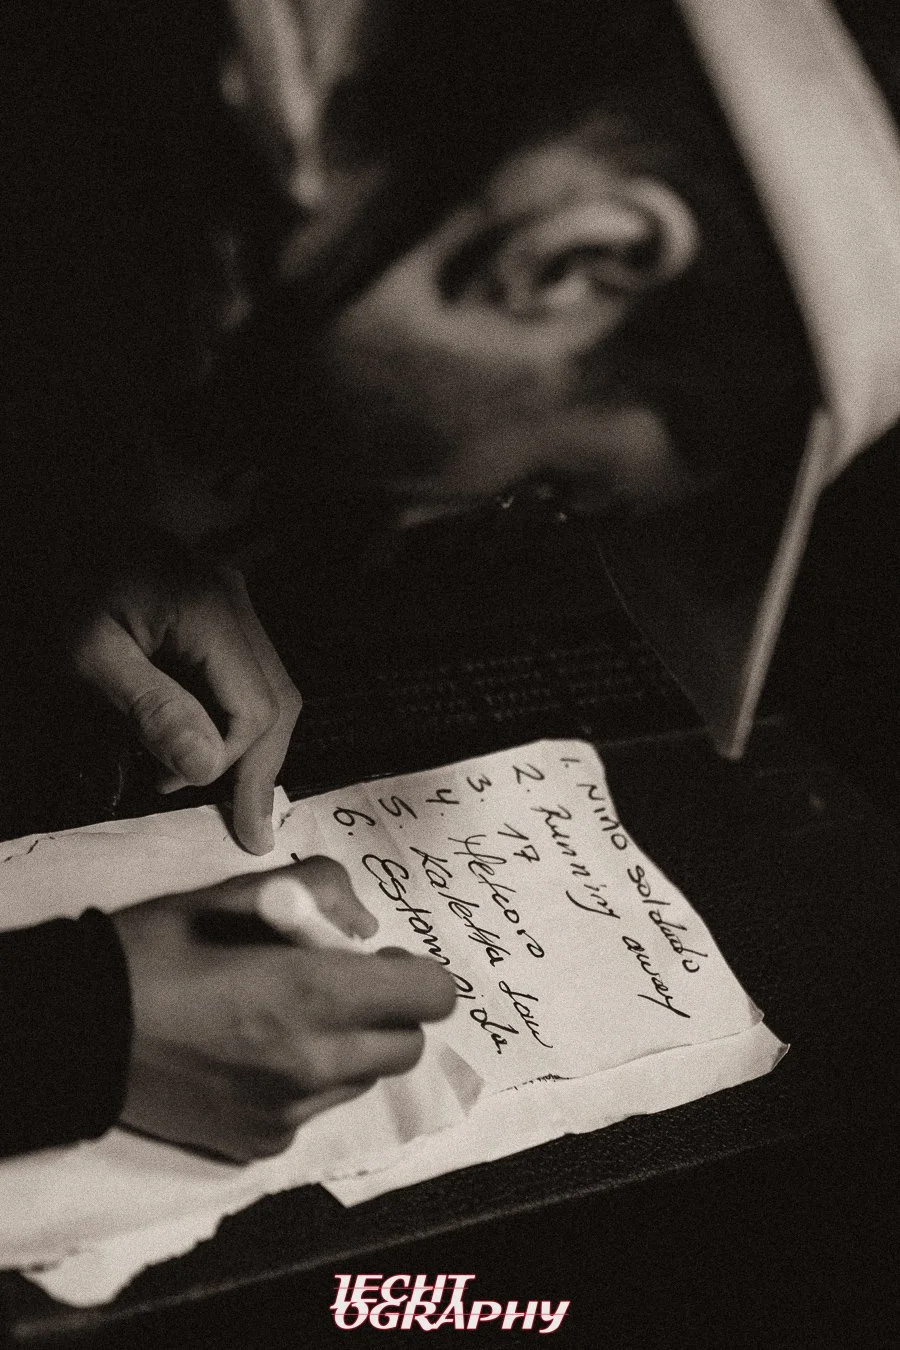 1. Niño soldado
2. Running away
3. 17
4. Meteoro
5. Kaletta Jau
6. Estampida.
IECHT
OGRAPHY